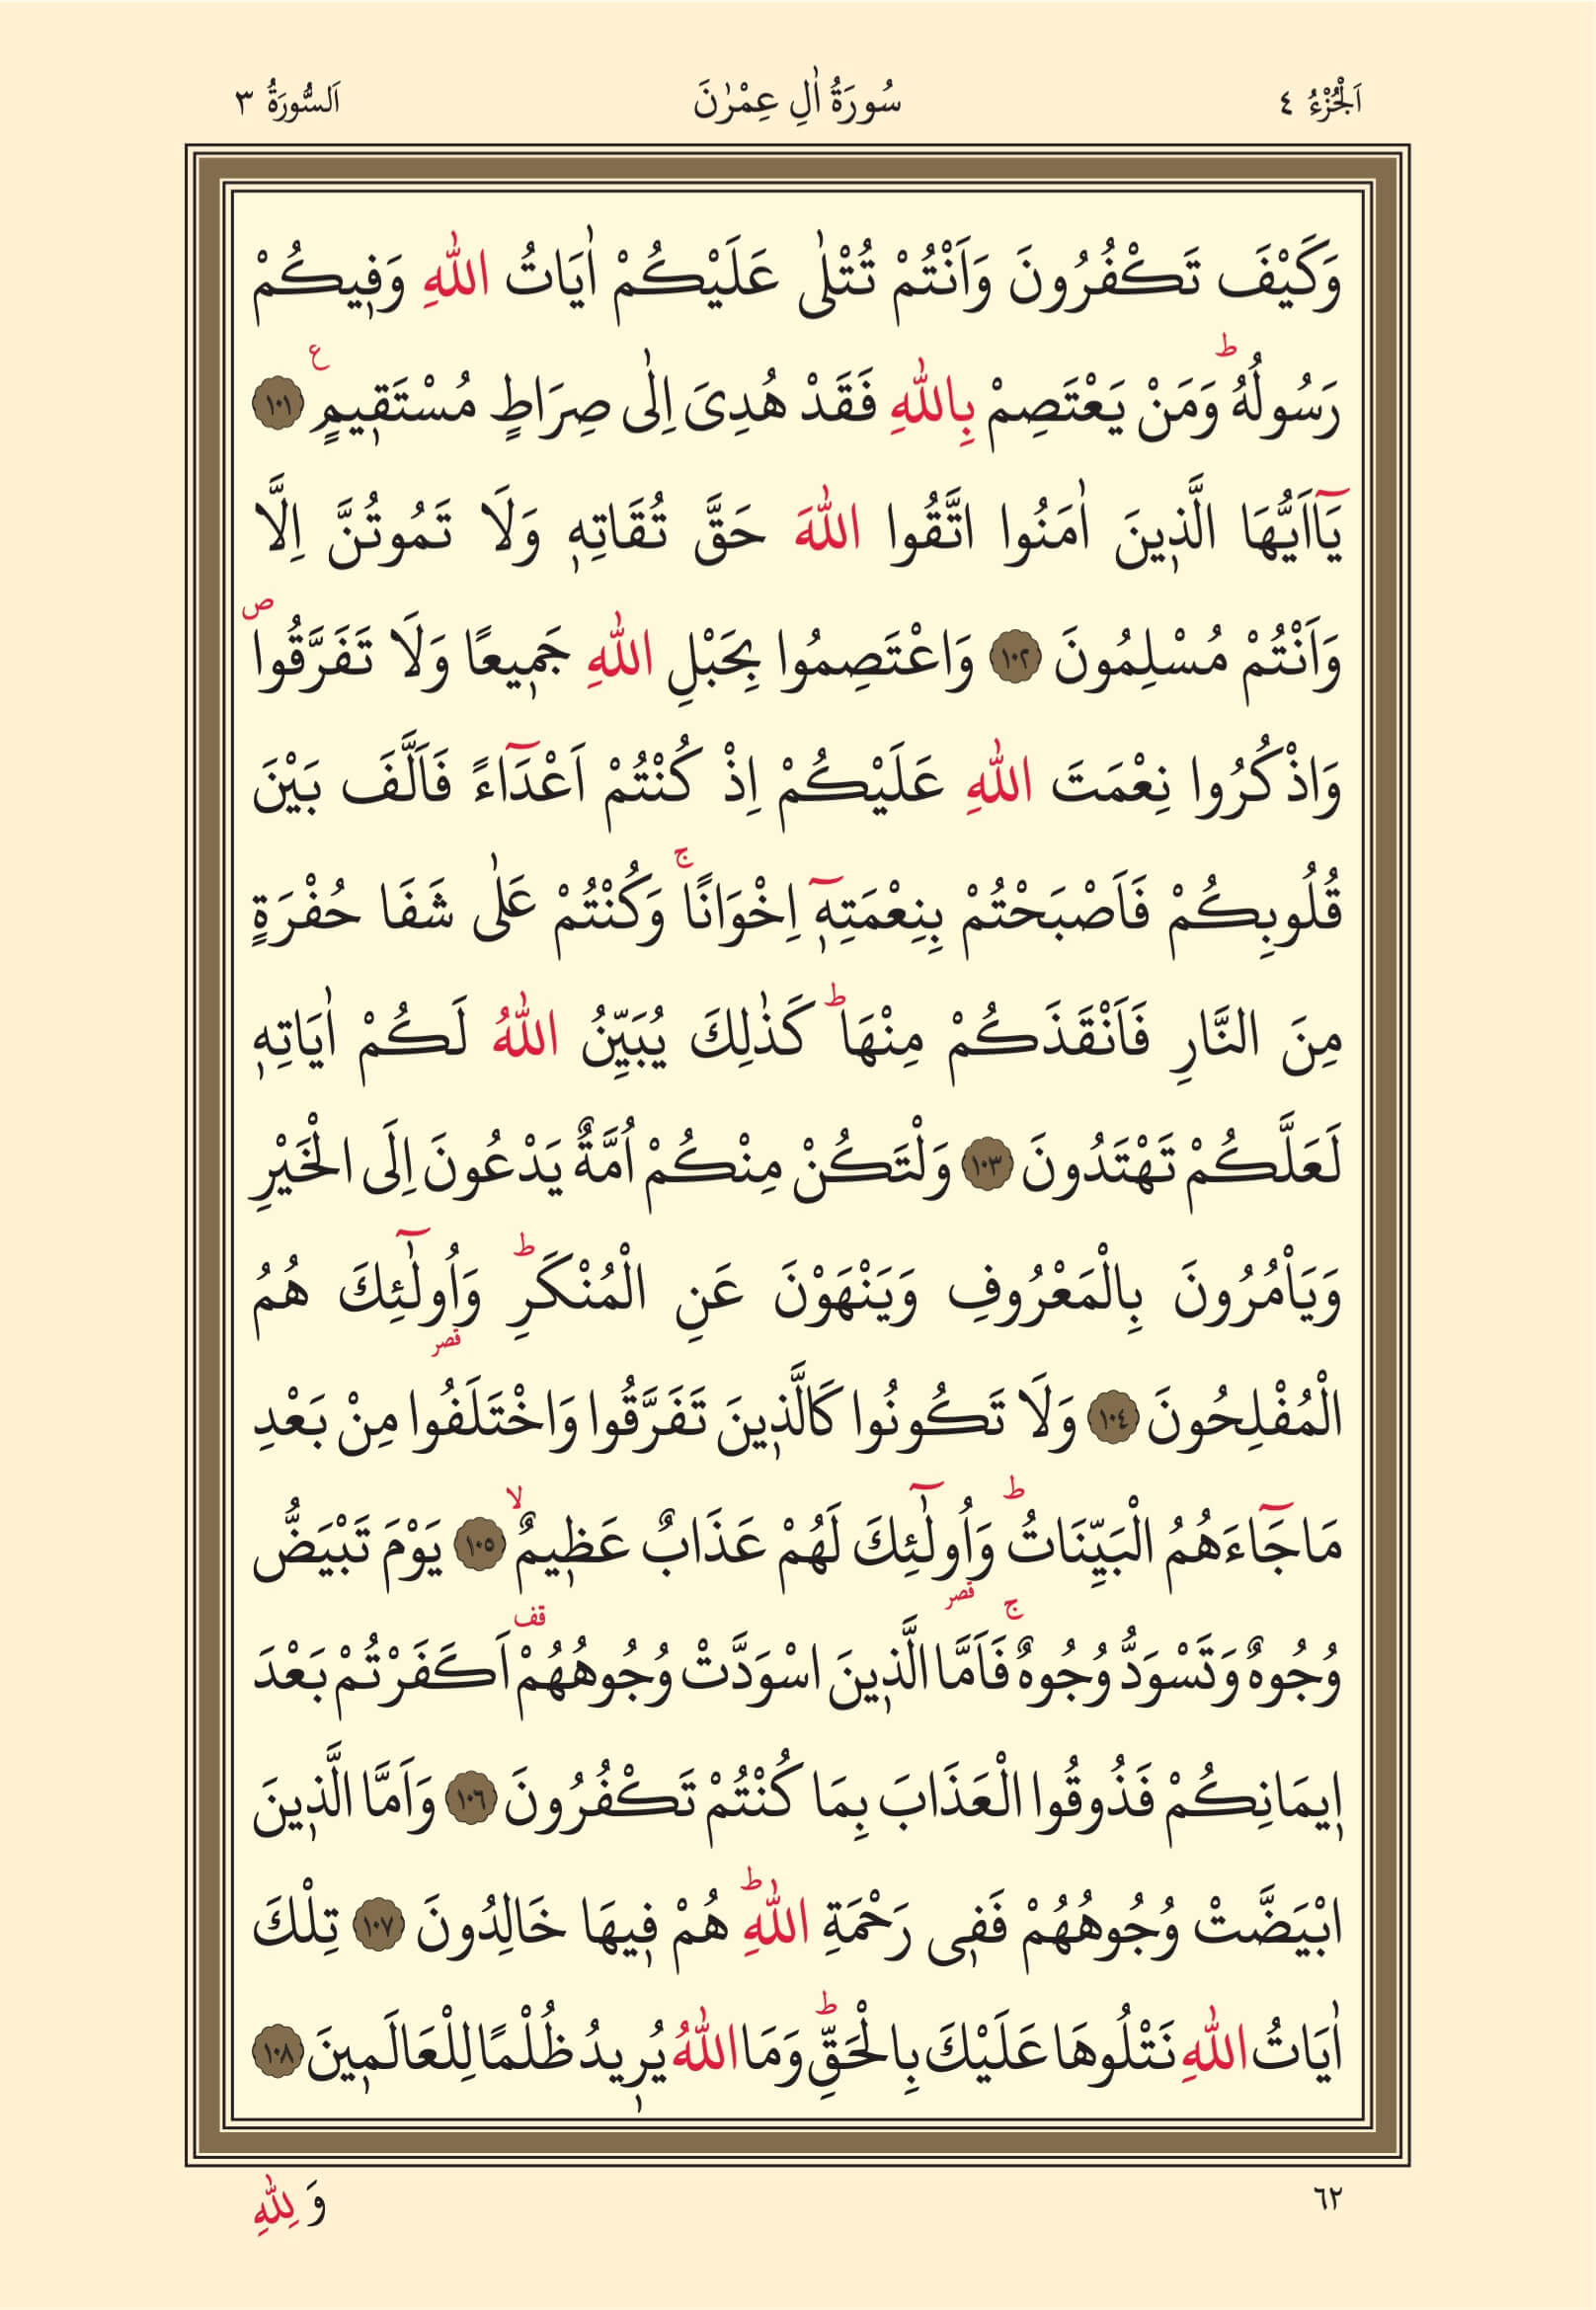 اَلْجُزْءُ ٤
سُورَةُ اٰلِ عِمْرٰنَ
اَلسُّورَةُ ٣
وَكَيْفَ تَكْفُرُونَ وَاَنْتُمْ تُتْلٰى عَلَيْكُمْ اٰيَاتُ اللّٰهِ وَف۪يكُمْ
رَسُولُهُۜ وَمَنْ يَعْتَصِمْ بِاللّٰهِ فَقَدْ هُدِىَ اِلٰى صِرَاطٍ مُسْتَق۪يمٍ۟ ﴿١٠١﴾
يَٓااَيُّهَا الَّذ۪ينَ اٰمَنُوا اتَّقُوا اللّٰهَ حَقَّ تُقَاتِه۪ وَلَا تَمُوتُنَّ اِلَّا
وَاَنْتُمْ مُسْلِمُونَ ﴿١٠٢﴾ وَاعْتَصِمُوا بِحَبْلِ اللّٰهِ جَم۪يعًا وَلَا تَفَرَّقُواۖ
وَاذْكُرُوا نِعْمَتَ اللّٰهِ عَلَيْكُمْ اِذْ كُنْتُمْ اَعْدَٓاءً فَاَلَّفَ بَيْنَ
قُلُوبِكُمْ فَاَصْبَحْتُمْ بِنِعْمَتِه۪ٓ اِخْوَانًاۚ وَكُنْتُمْ عَلٰى شَفَا حُفْرَةٍ
مِنَ النَّارِ فَاَنْقَذَكُمْ مِنْهَاۜ كَذٰلِكَ يُبَيِّنُ اللّٰهُ لَكُمْ اٰيَاتِه۪
لَعَلَّكُمْ تَهْتَدُونَ ﴿١٠٣﴾ وَلْتَكُنْ مِنْكُمْ اُمَّةٌ يَدْعُونَ اِلَى الْخَيْرِ
وَيَاْمُرُونَ بِالْمَعْرُوفِ وَيَنْهَوْنَ عَنِ الْمُنْكَرِۜ وَاُو۬لٰٓئِكَ هُمُ
الْمُفْلِحُونَ ﴿١٠٤﴾ وَلَا تَكُونُوا كَالَّذ۪ينَ تَفَرَّقُوا وَاخْتَلَفُوا مِنْ بَعْدِ
مَا جَٓاءَهُمُ الْبَيِّنَاتُۜ وَاُو۬لٰٓئِكَ لَهُمْ عَذَابٌ عَظ۪يمٌۙ ﴿١٠٥﴾ يَوْمَ تَبْيَضُّ
وُجُوهٌ وَتَسْوَدُّ وُجُوهٌۚ فَاَمَّا الَّذ۪ينَ اسْوَدَّتْ وُجُوهُهُمْ۠ اَكَفَرْتُمْ بَعْدَ
ا۪يمَانِكُمْ فَذُوقُوا الْعَذَابَ بِمَا كُنْتُمْ تَكْفُرُونَ ﴿١٠٦﴾ وَاَمَّا الَّذ۪ينَ
ابْيَضَّتْ وُجُوهُهُمْ فَف۪ى رَحْمَةِ اللّٰهِۜ هُمْ ف۪يهَا خَالِدُونَ ﴿١٠٧﴾ تِلْكَ
اٰيَاتُ اللّٰهِ نَتْلُوهَا عَلَيْكَ بِالْحَقِّۜ وَمَا اللّٰهُ يُر۪يدُ ظُلْمًا لِلْعَالَم۪ينَ ﴿١٠٨﴾
٦٢
وَ لِلّٰهِ